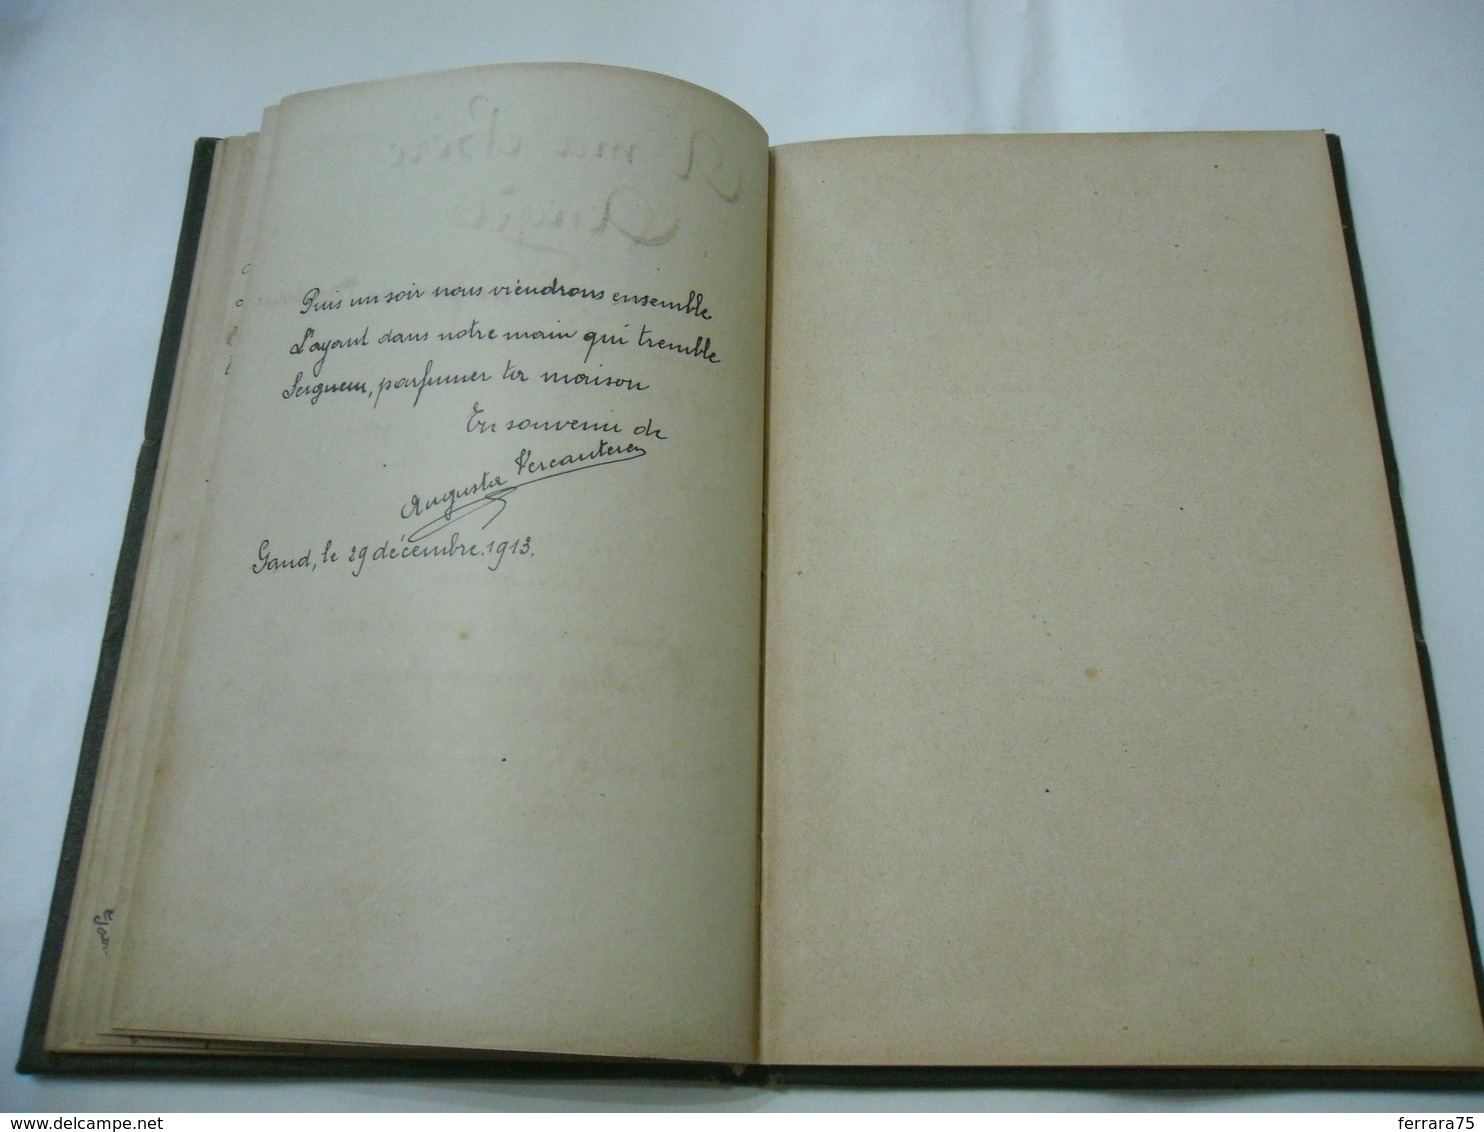 Puis un soir nous viendrons ensemble
L'ayant dans notre main qui tremble
Seigneur, parfumer ta maison
En souvenir de
Augusta Vercauteren
Gand, le 29 décembre. 1913.
ferrara75